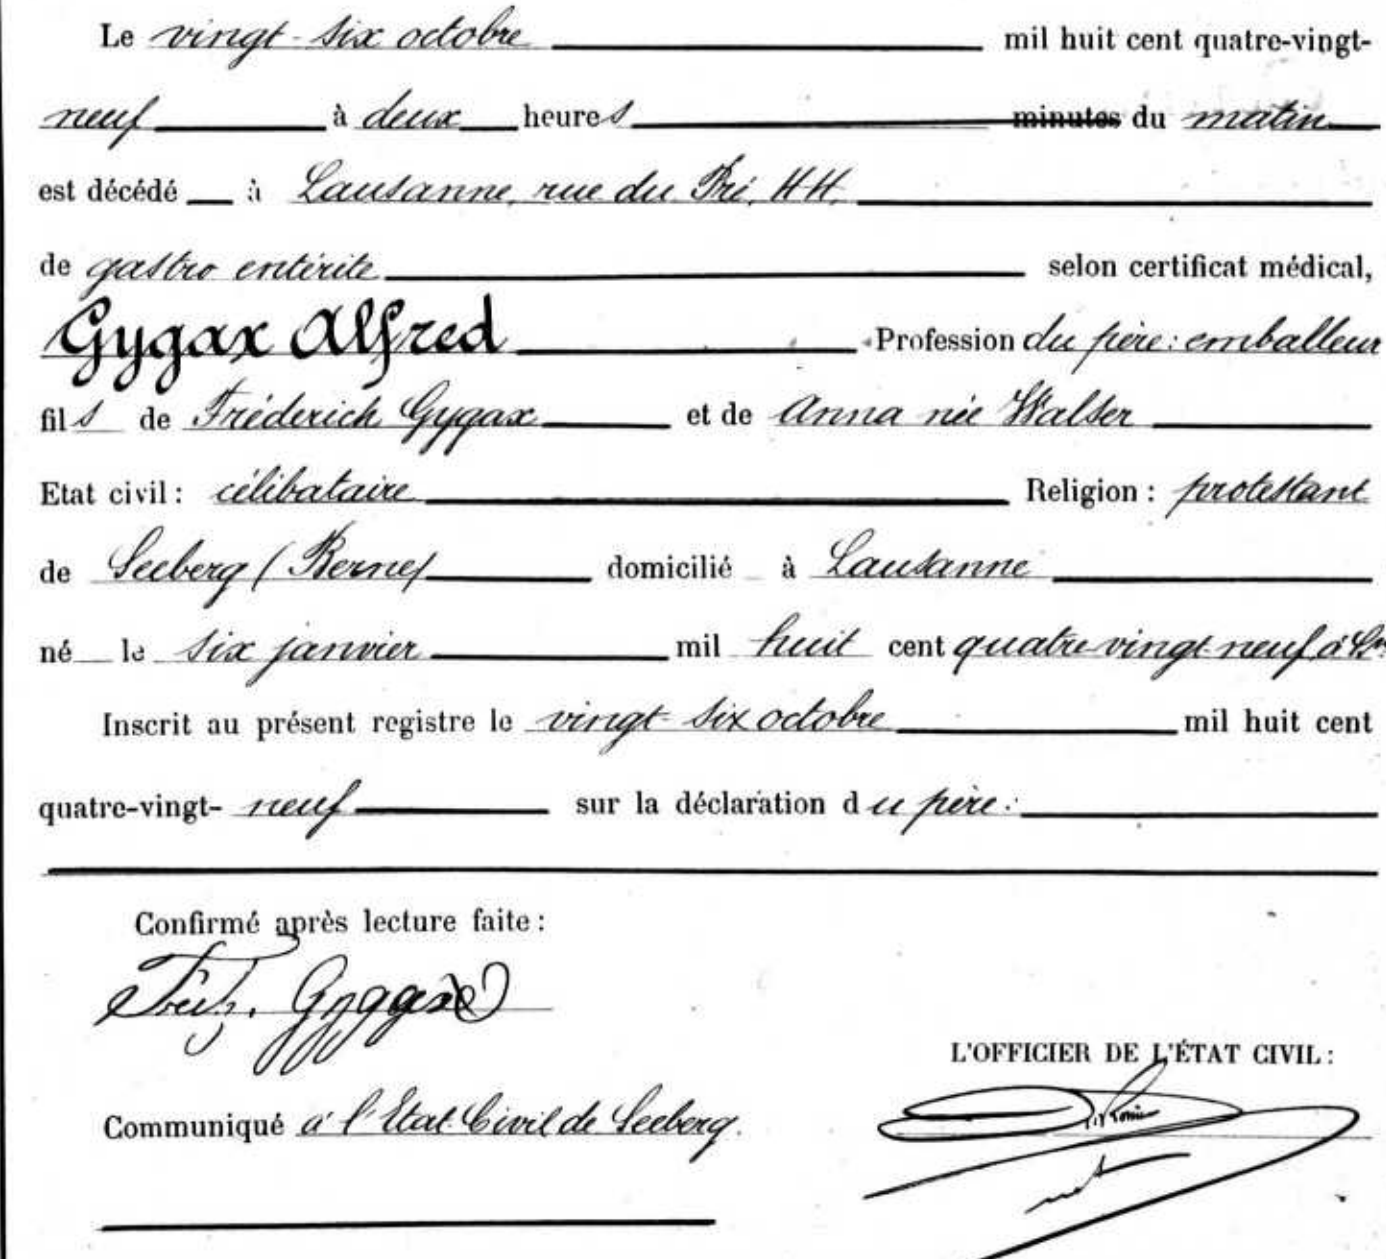 Le vingt-six octobre mil huit cent quatre-vingt-
neuf à deux heures minutes du matin
est décédé à Lausanne, rue du Pré, 44,
de gastro entérite selon certificat médical,
Gygax Alfred Profession du père: emballeur
fils de Fréderich Gygax et de Anna née Walser
Etat civil: célibataire Religion: protestant
de Seeberg (Berne) domicilié à Lausanne
né le six janvier mil huit cent quatre vingt neuf à
Inscrit au présent registre le vingt-six octobre mil huit cent
quatre-vingt-neuf sur la déclaration du père:
Confirmé après lecture faite:
Gygax
L'OFFICIER DE L'ÉTAT CIVIL:
Communiqué à l'Etat Civil de Seeberg.